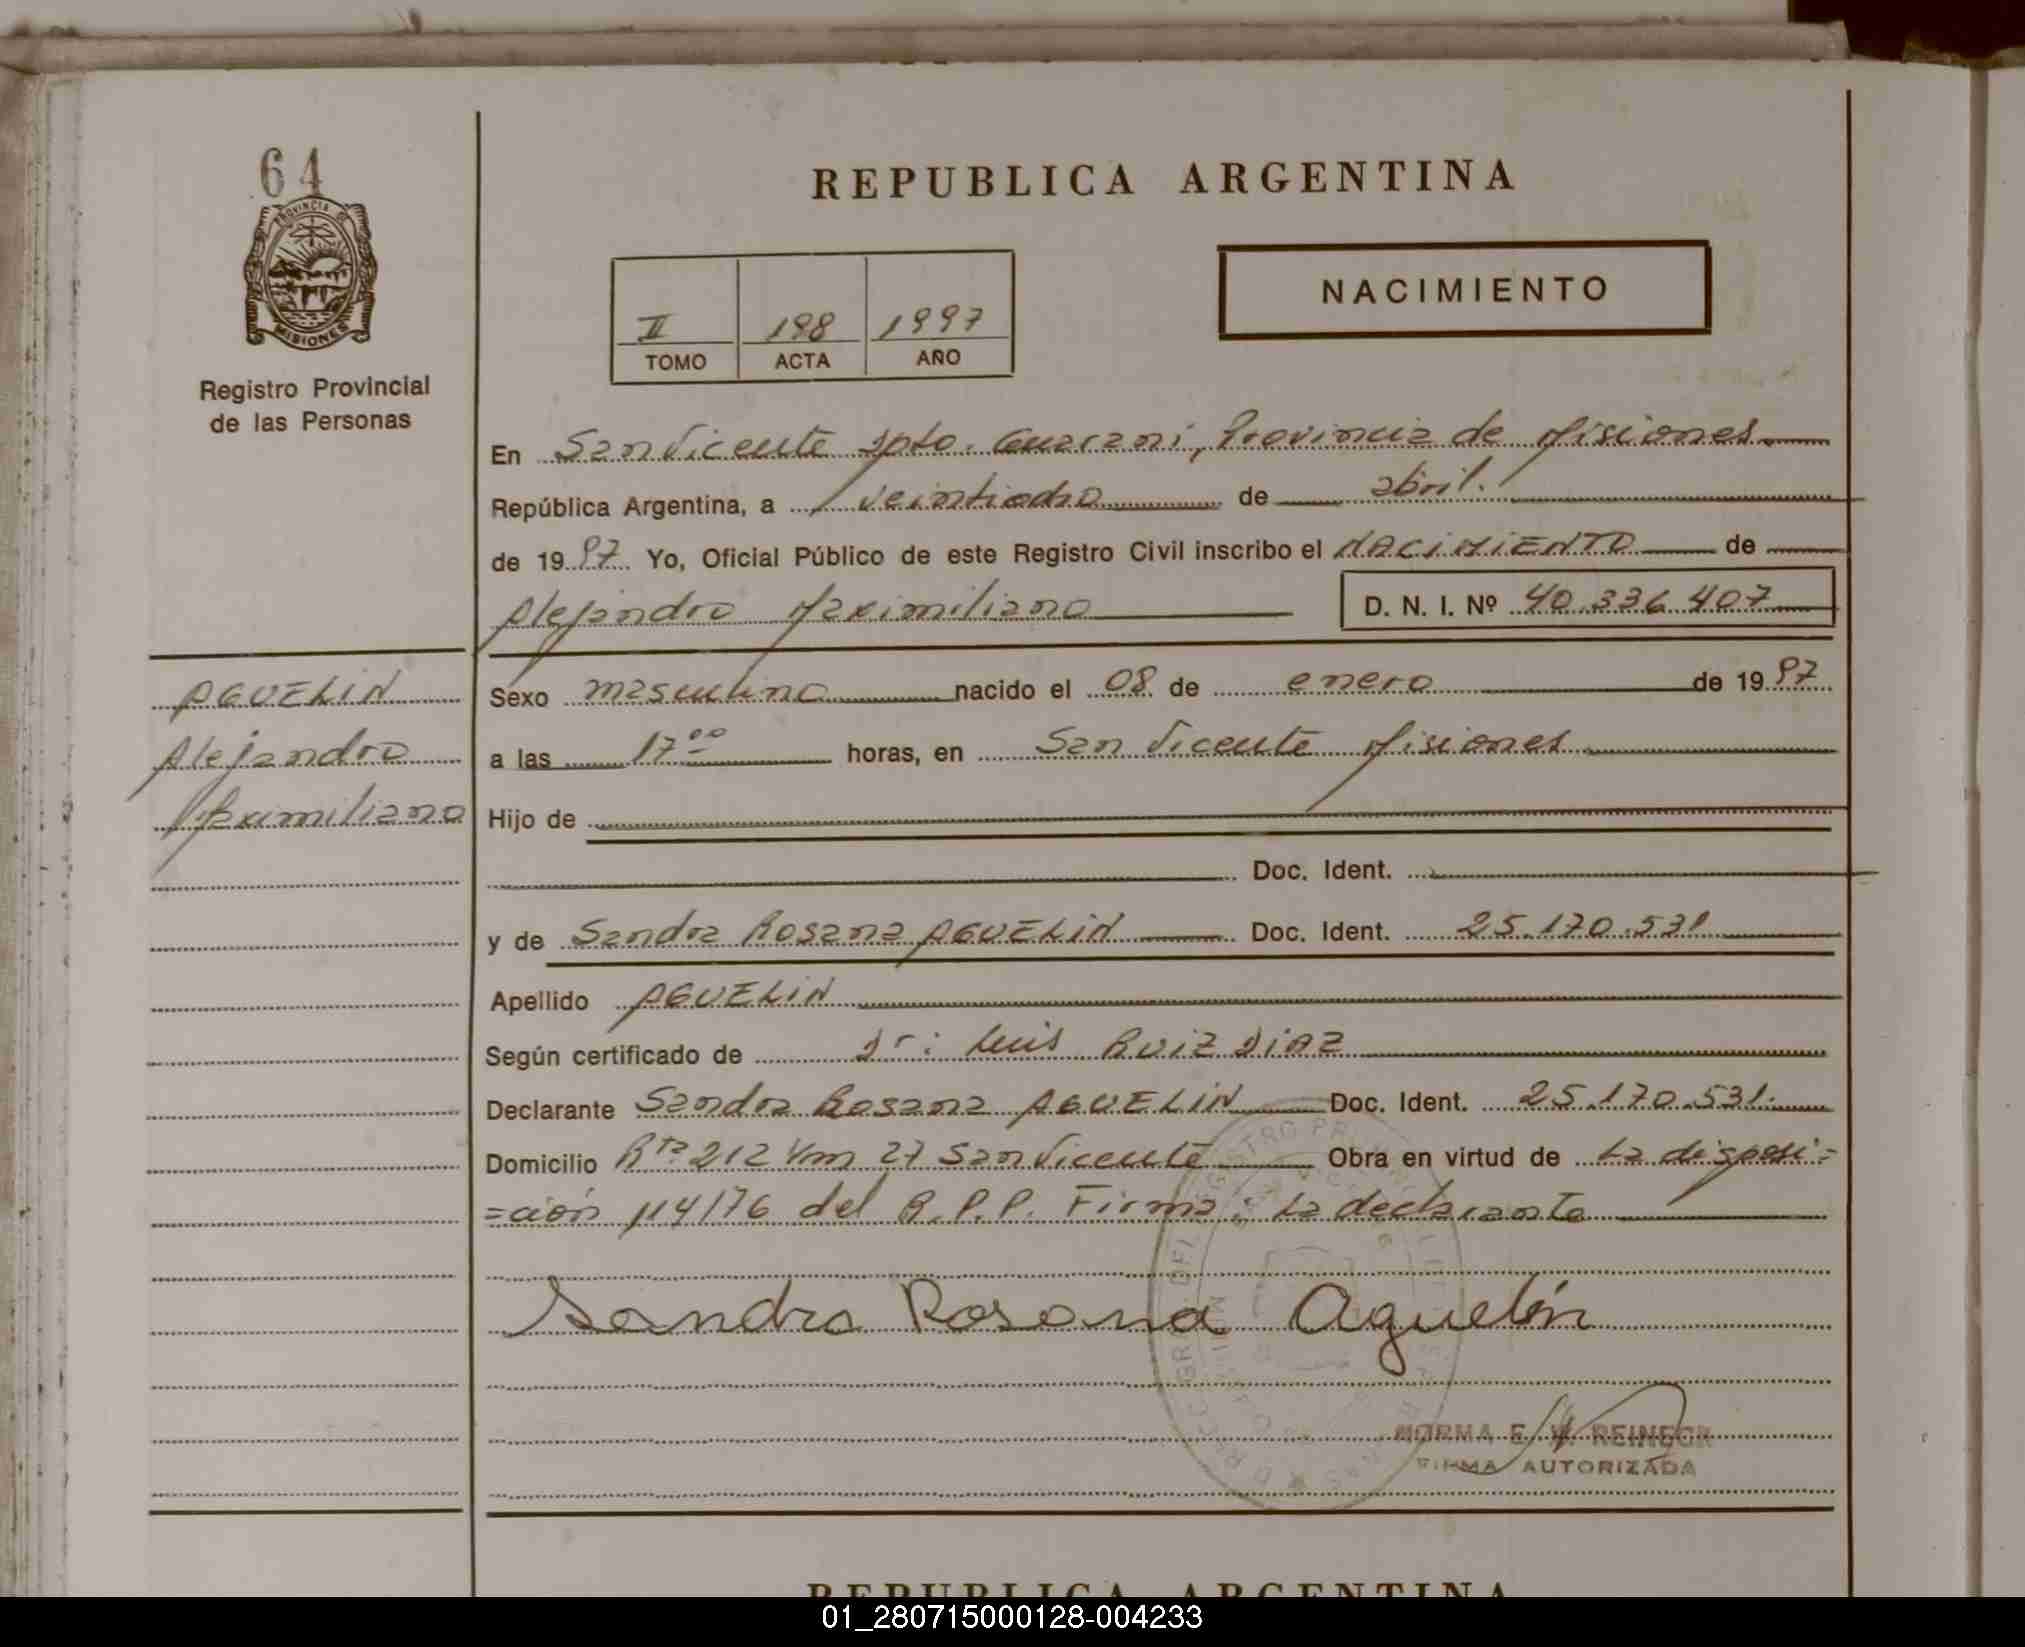 64
PROVINCIA DE
MISIONES
Registro Provincial
de las Personas
REPUBLICA ARGENTINA
NACIMIENTO
II 198 1997
TOMO ACTA AÑO
En San Vicente Dpto. Guarani, Provincia de Misiones.
República Argentina, a veintiocho de abril.
de 1997 Yo, Oficial Público de este Registro Civil inscribo el NACIMIENTO de
Alejandro Maximiliano D. N. I. Nº 40.336.407
AGUELIN
Alejandro
Maximiliano
Sexo masculino nacido el 08 de enero de 1997
a las 17⁰⁰ horas, en San Vicente Misiones
Hijo de
Doc. Ident.
y de Sandra Rosana AGUELIN Doc. Ident. 25.170.531
Apellido AGUELIN
Según certificado de Dr: Luis RUIZ DIAZ
Declarante Sandra Rosana AGUELIN Doc. Ident. 25.170.531.
Domicilio Rta 212 Km 27 San Vicente Obra en virtud de La disposi=
=ción 114/76 del R.P.P. Firma: La declarante
Sandra Rosana Aguelin
NORMA E. REINECK
FIRMA AUTORIZADA
REPUBLICA ARGENTINA
01_280715000128-004233